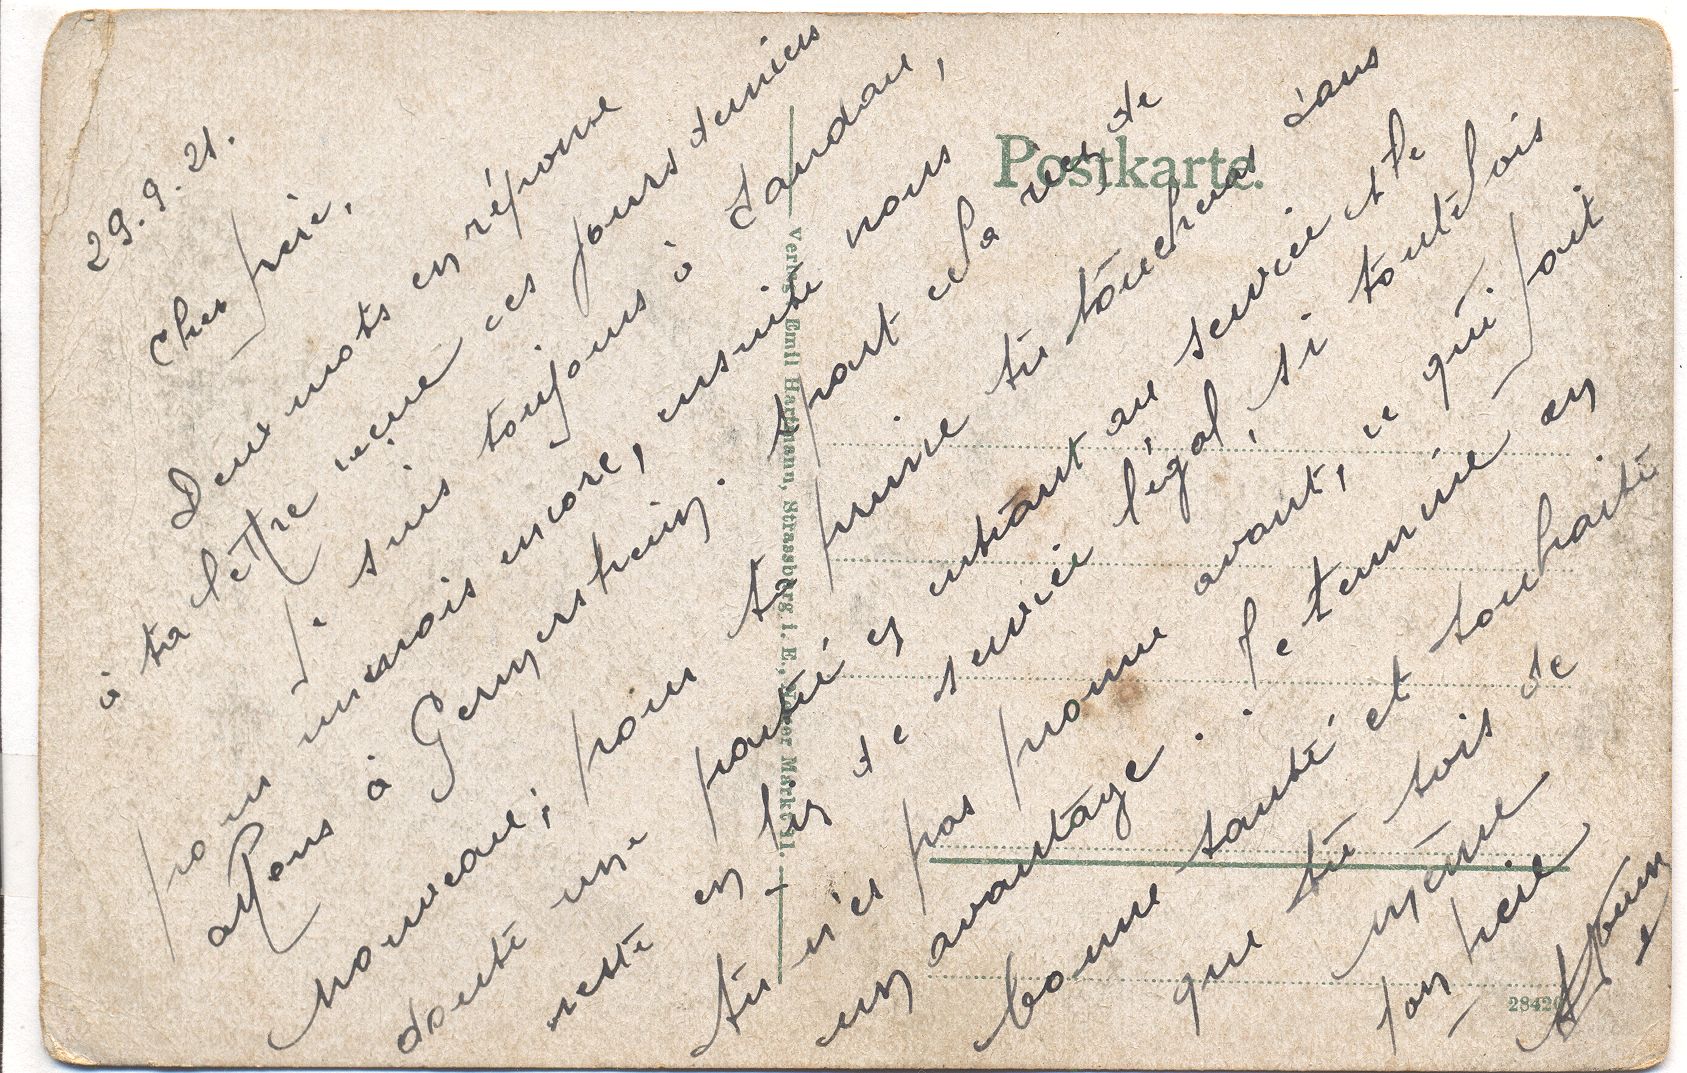 29.9.21.
Cher frère,
Deux mots en réponse
à ta lettre reçue ces jours derniers
Je suis toujours à Landau,
pour un mois encore, ensuite nous
allons à Germersheim. A part cela rien de
nouveau; pour ta prime tu toucheras sans
doute une partie en entrant au service et le
reste en fin de service légal, si toutefois
tu n'es pas nommé avant, ce qui fait
un avantage. Je termine en
bonne santé et souhaite
que tu sois de
même
ton frère
Postkarte.
Verlag Emil Hartmann, Strassburg i. E., Alter Markt 31.
2842